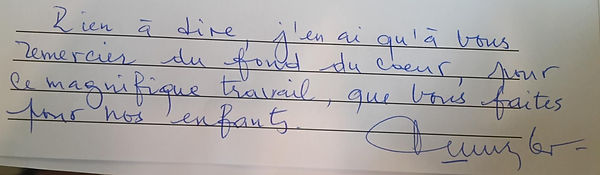 Rien à dire, j'en ai qu'à vous
remercier du fond du coeur, pour
ce magnifique travail, que vous faites
pour nos enfants.